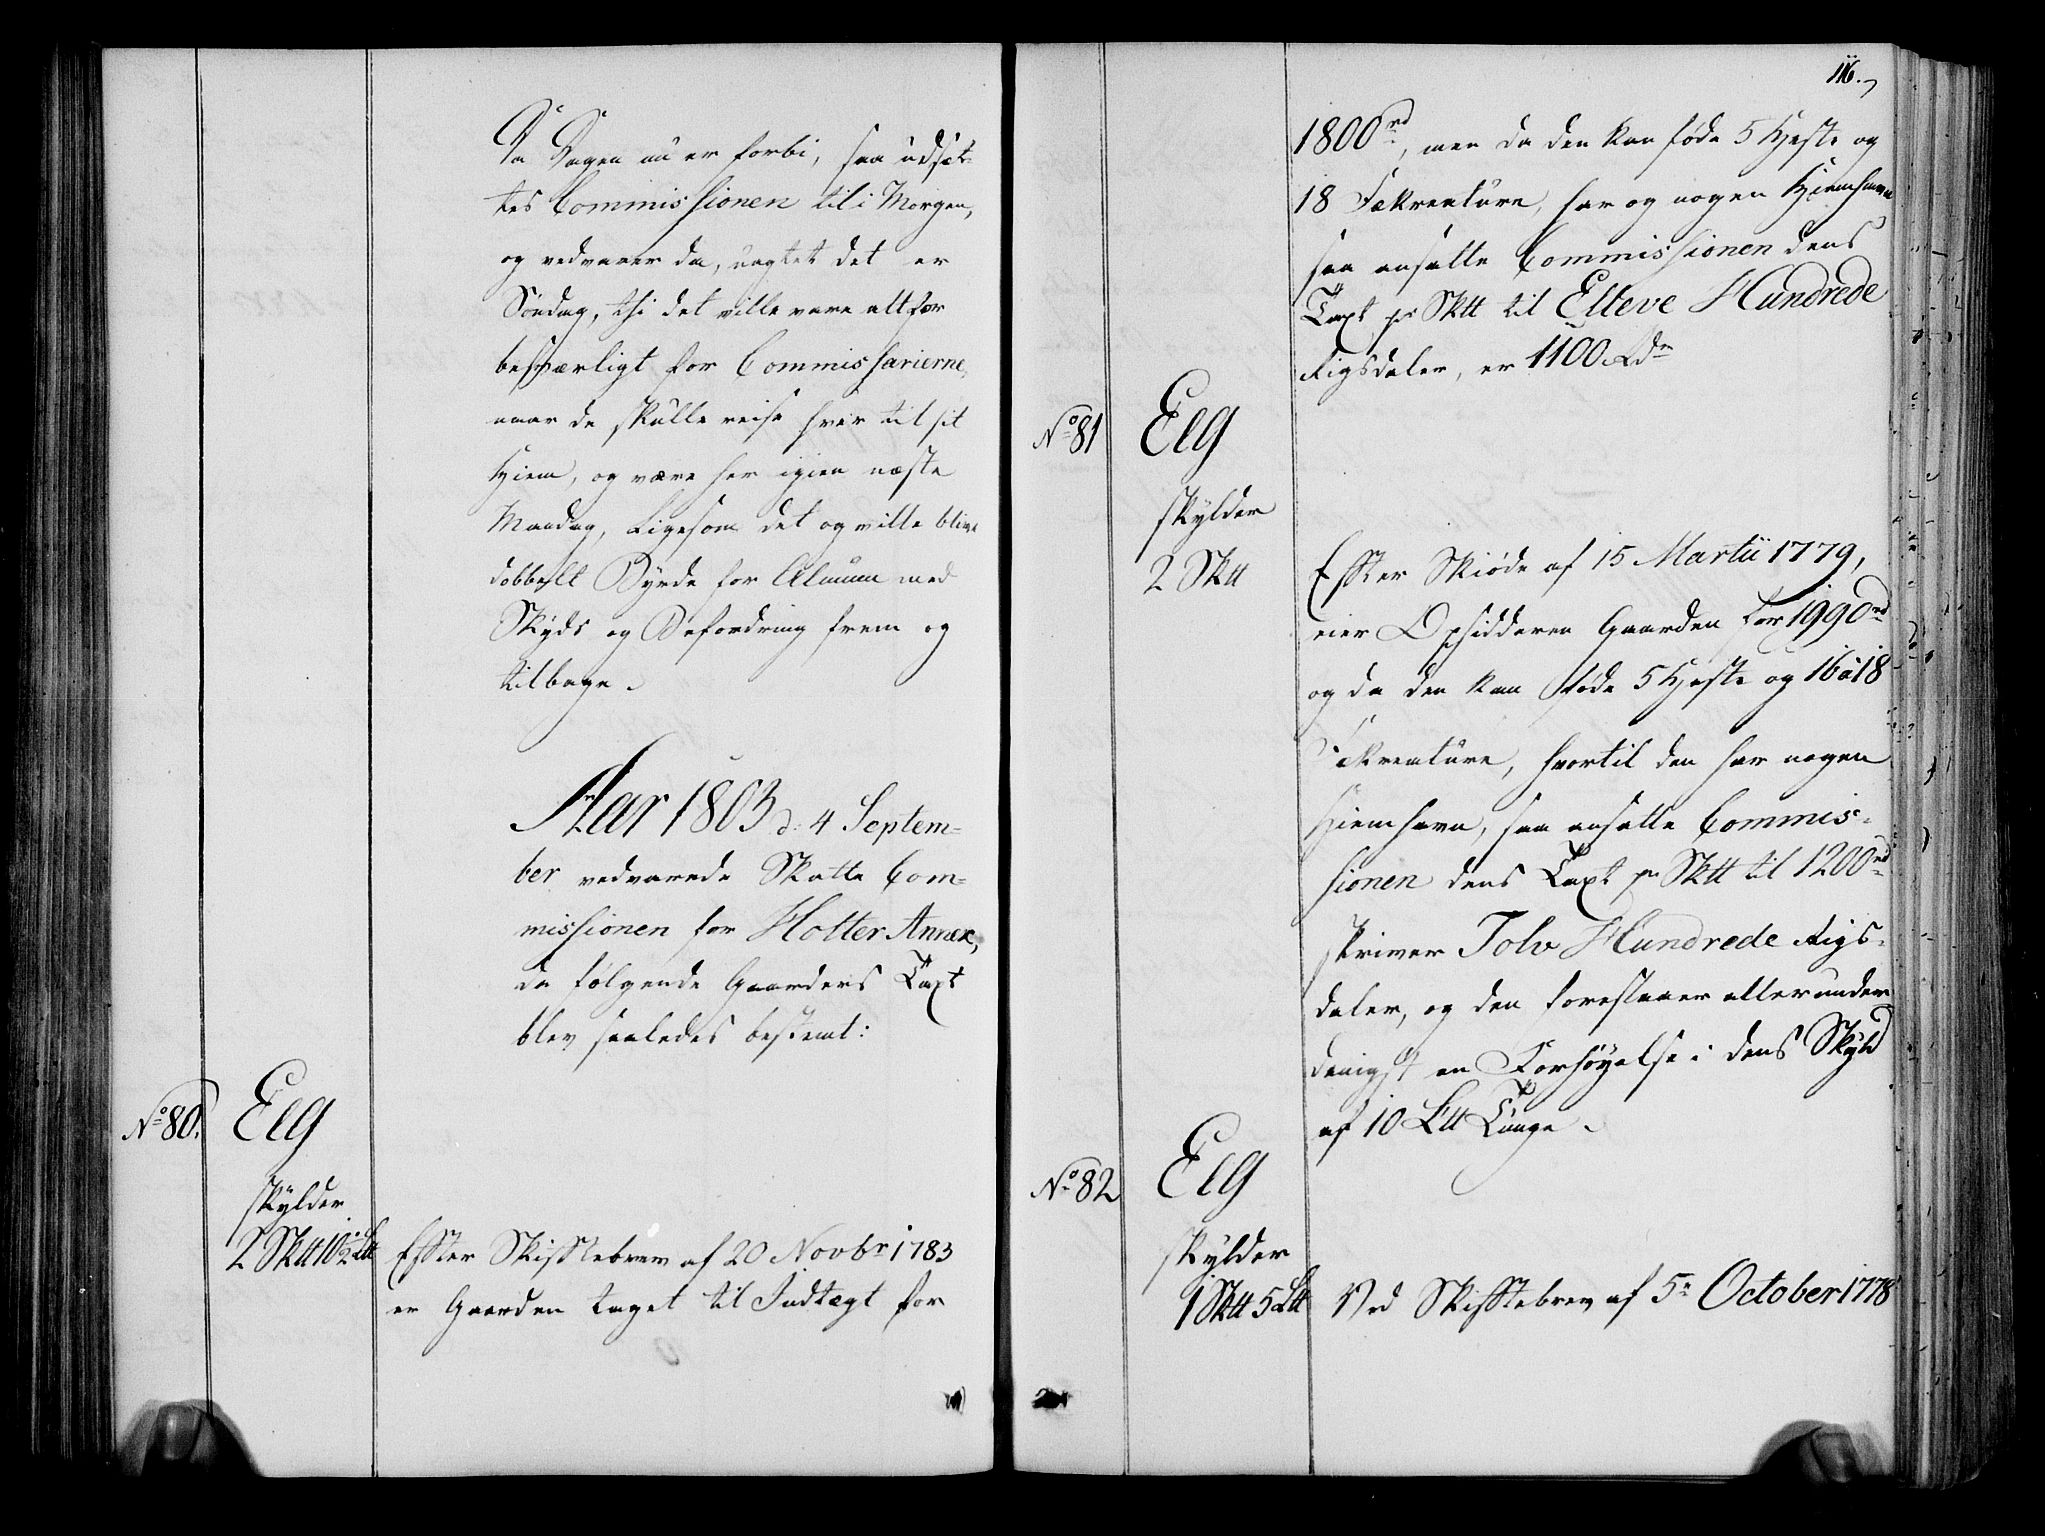 Da Dagen nu er forbi, saa udsæt-
tes Commissionen til i Morgen,
og vedvarer da, uagtet det er
Søndag, thi det ville være altfor
besværligt for Commissarierne,
naar de skulle reise hver til sit
Hiem, og være her igien næste
Mandag, Ligesom det og ville blive
dobbelt Byrde for Almuen med
Skyds og Befordring frem og
tilbage.
Aar 1803 d: 4 Septem-
ber vedvarede Skatte Com-
missionen for Holter Annex,
da følgende Gaarders Taxt
blev saaledes bestemt:
No 80. Elg
skylder
2 Sktt 10½ Ltt Effter Skifftebrev af 20 Novbr 1783
er Gaarden taget til Indtægt for
116.
1800 rd, men da den kan føde 5 Heste og
18 Fækreature, har og nogen Hjemhavn
saa ansatte Commissionen dens
Taxt pr Sktt til Elleve Hundrede
Rigsdaler, er 1100 Rdr
No 81 Elg
skylder
2 Sktt Effter Skiøde af 15 Martii 1779,
eier Opsidderen Gaarden for 1990 rd
og da den kan føde 5 Heste og 16 à 18
Fækreature, hvortil den har nogen
Hiemhavn, saa ansatte Commis-
sionen dens Taxt pr Sktt til 1200 rd
skriver Tolv Hundrede Rigs-
daler, og den forestaaer allerunder
danigst en Forhøyelse i dens Skyld
af 10 Ltt Tunge.
No 82 Elg
skylder
1 Sktt 5 Ltt Ved Skifftebrev af 5e October 1778